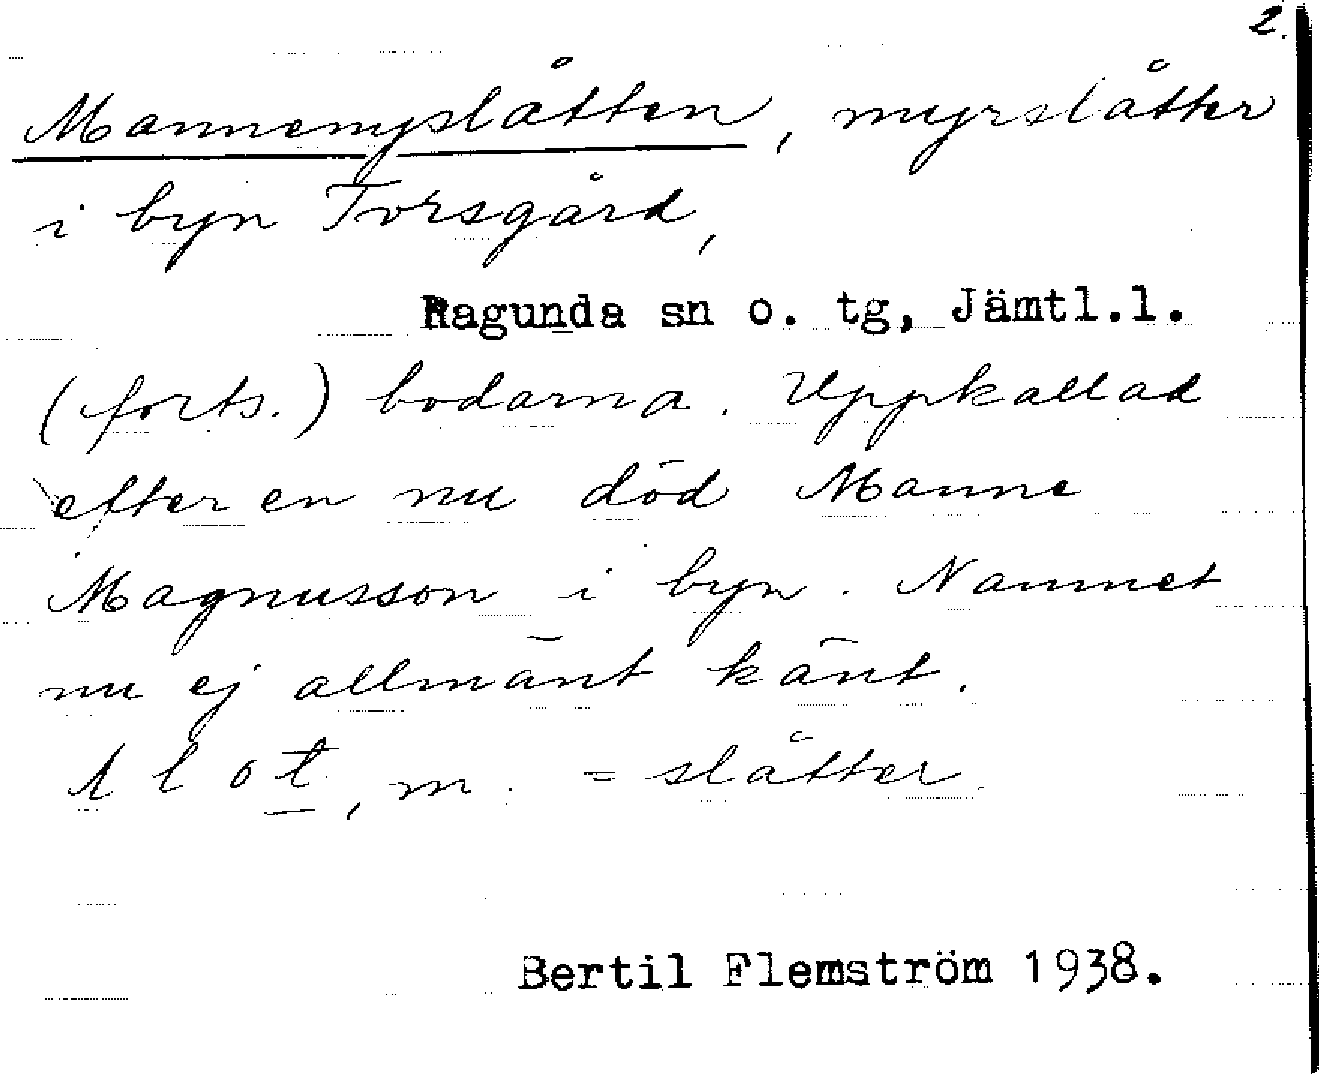 2.
Mannemyslåtten, myrslåtter
i byn Torsgård,
Ragunda sn o. tg, Jämtl.l.
(forts.) bodarna. Uppkallad
efter en nu död Manne
Magnusson i byn. Namnet
nu ej allmänt känt.
slot, m. = slåtter.
Bertil Flemström 1938.